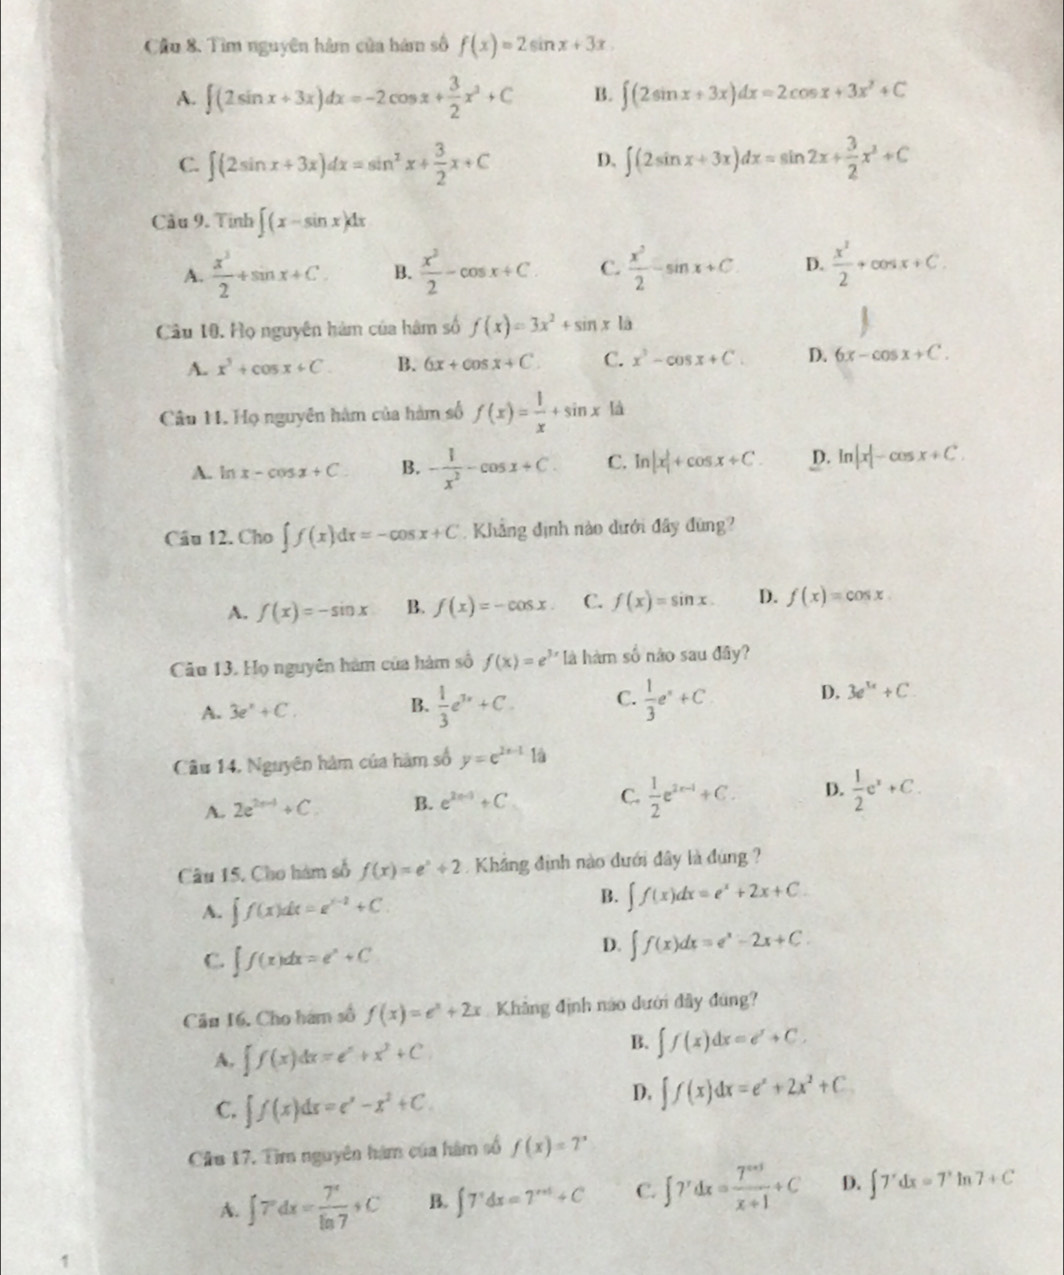 Câu 8. Tìm nguyên hàm của hàm số f(x) = 2 sin x + 3x.
A. ∫(2 sin x + 3x)dx = -2 cos x + 3/2 x² + C B. ∫(2 sin x + 3x)dx = 2 cos x + 3x² + C
C. ∫(2 sin x + 3x)dx = sin² x + 3/2 x + C D. ∫(2 sin x + 3x)dx = sin 2x + 3/2 x² + C
Câu 9. Tính ∫(x - sin x)dx
A. x²/2 + sin x + C. B. x²/2 - cos x + C. C. x²/2 - sin x + C. D. x²/2 + cos x + C.
Câu 10. Họ nguyên hàm của hàm số f(x) = 3x² + sin x là
A. x³ + cos x + C. B. 6x + cos x + C. C. x³ - cos x + C. D. 6x - cos x + C.
Câu 11. Họ nguyên hàm của hàm số f(x) = 1/x + sin x là
A. ln x - cos x + C. B. -1/x² - cos x + C. C. ln|x| + cos x + C. D. ln|x| - cos x + C.
Câu 12. Cho ∫f(x)dx = -cos x + C. Khẳng định nào dưới đây đúng?
A. f(x) = -sin x. B. f(x) = -cos x. C. f(x) = sin x. D. f(x) = cos x.
Câu 13. Họ nguyên hàm của hàm số f(x) = e³ˣ là hàm số nào sau đây?
A. 3eˣ + C. B. 1/3 e³ˣ + C. C. 1/3 eˣ + C. D. 3e³ˣ + C.
Câu 14. Nguyên hàm của hàm số y = e²ˣ⁻¹ là
A. 2e²ˣ⁻¹ + C. B. e²ˣ⁻¹ + C. C. 1/2 e²ˣ⁻¹ + C. D. 1/2 eˣ + C.
Câu 15. Cho hàm số f(x) = eˣ + 2. Khẳng định nào dưới đây là đúng ?
A. ∫f(x)dx = eˣ⁻² + C. B. ∫f(x)dx = eˣ + 2x + C.
C. ∫f(x)dx = eˣ + C. D. ∫f(x)dx = eˣ - 2x + C.
Câu 16. Cho hàm số f(x) = eˣ + 2x. Khẳng định nào dưới đây đúng?
A. ∫f(x)dx = eˣ + x² + C. B. ∫f(x)dx = eˣ + C.
C. ∫f(x)dx = eˣ - x² + C. D. ∫f(x)dx = eˣ + 2x² + C.
Câu 17. Tìm nguyên hàm của hàm số f(x) = 7ˣ
A. ∫7ˣdx = 7ˣ/ln 7 + C B. ∫7ˣdx = 7ˣ⁺¹ + C C. ∫7ˣdx = 7ˣ⁺¹/(x + 1) + C D. ∫7ˣdx = 7ˣ ln 7 + C
1